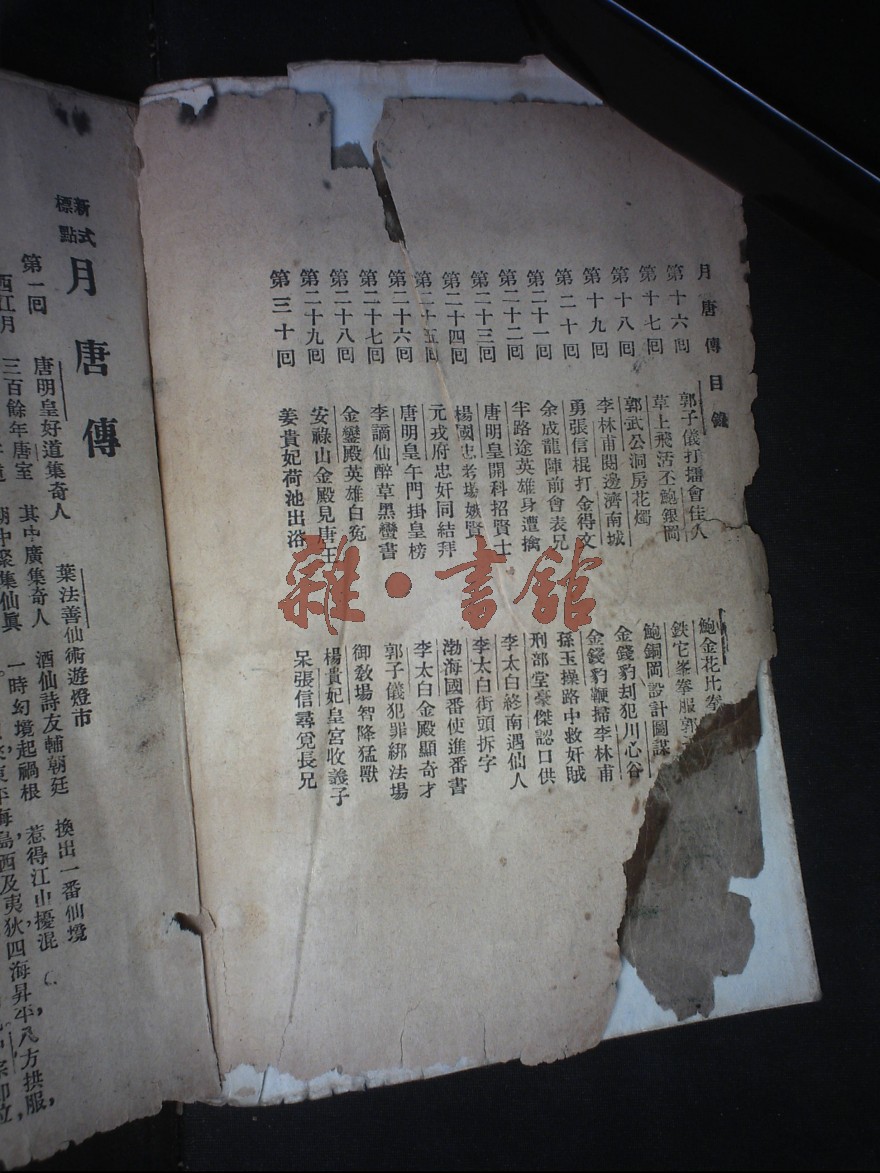 月唐傳目錄
第十六回　郭子儀打擂會佳人　鮑金花比拳
第十七回　草上飛活丕鮑銀岡　鉄它峯拳服郭
第十八回　郭武公洞房花燭　鮑銅岡設計圖謀
第十九回　李林甫閱邊濟南城　金錢豹刦犯川心谷
第二十回　勇張信棍打金得文　金錢豹鞭掃李林甫
第二十一回　余成龍陣前會表兄　孫玉操路中救奸賊
第二十二回　半路途英雄身遭擒　刑部堂豪傑認口供
第二十三回　唐明皇開科招賢士　李太白終南遇仙人
第二十四回　楊國忠考塲嫉賢　李太白街頭拆字
第二十五回　元戎府忠奸同結拜　渤海國番使進番書
第二十六回　唐明皇午門掛皇榜　李太白金殿顯奇才
第二十七回　李謫仙醉草黑蠻書　郭子儀犯罪綁法場
第二十八回　金鑾殿英雄白冤　御教場智降猛獸
第二十九回　安祿山金殿見唐王　楊貴妃皇宮收義子
第三十回　姜貴妃荷池出浴　呆張信尋覓長兄
新式
標點
月唐傳
第一回　唐明皇好道集奇人　葉法善仙術遊燈市
西江月　三百餘年唐室　其中廣集奇人　酒仙詩友輔朝廷　換出一番仙境
朝中聚集仙眞　一時幻境起禍根　惹得江山擾混
海島西及夷狄四海昇平八方拱服，
雜·書館